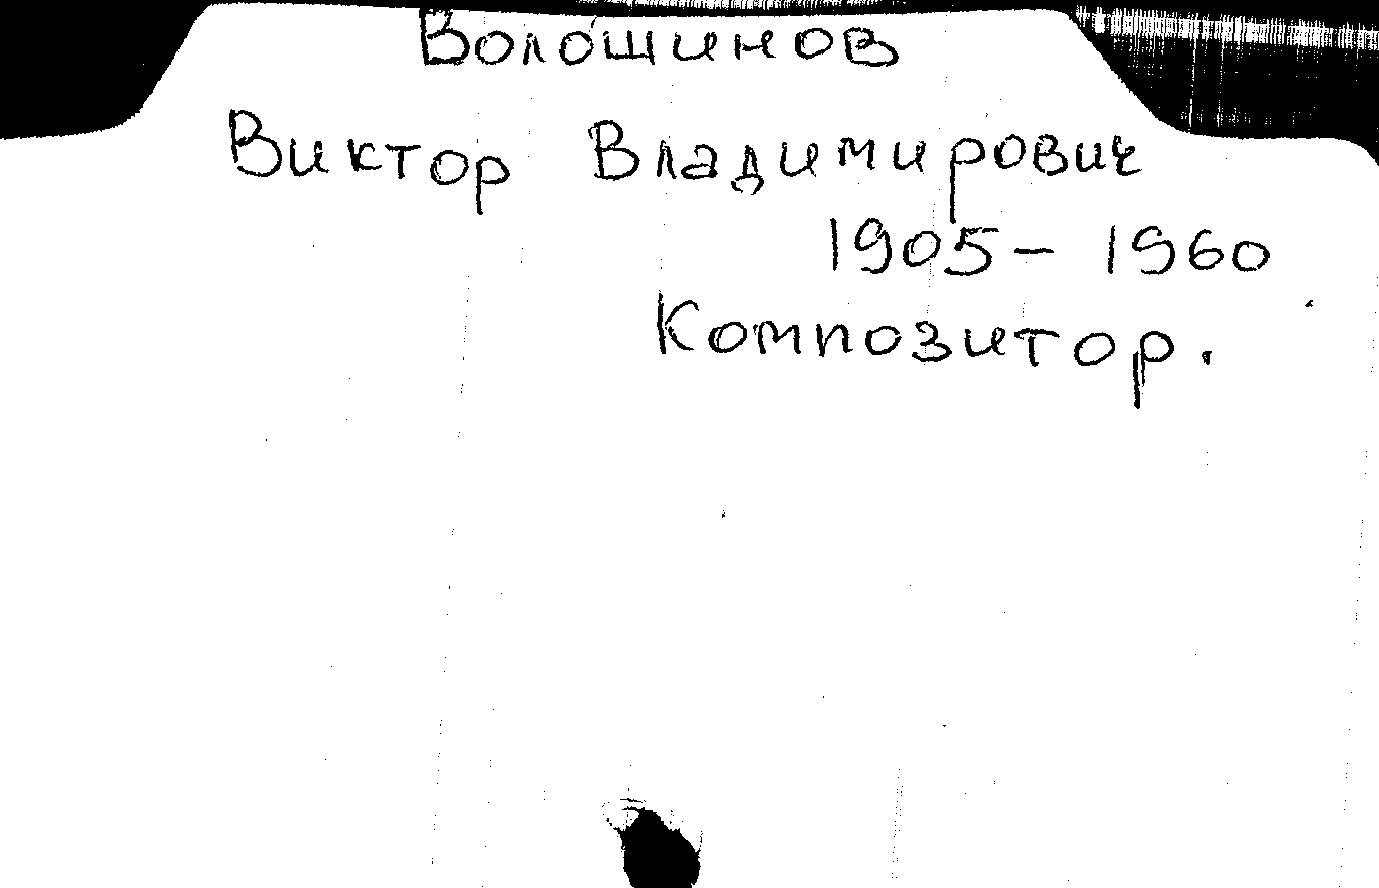 Волошинов
Виктор Владимирович
1905 – 1960
Композитор.